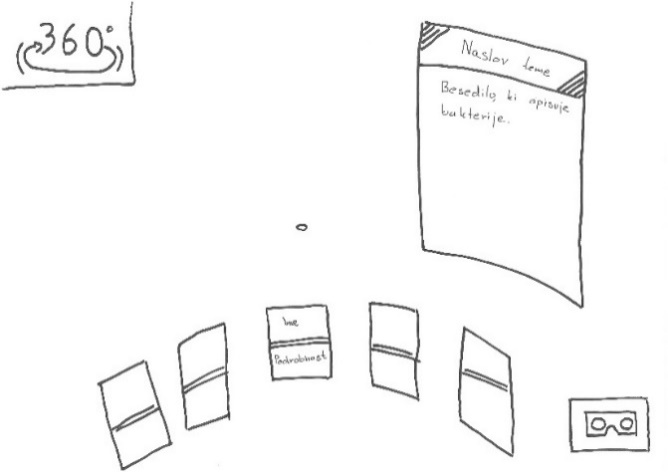 360°
Naslov teme
Besedilo, ki opisuje
bakterije..
Ime
Podrobnost